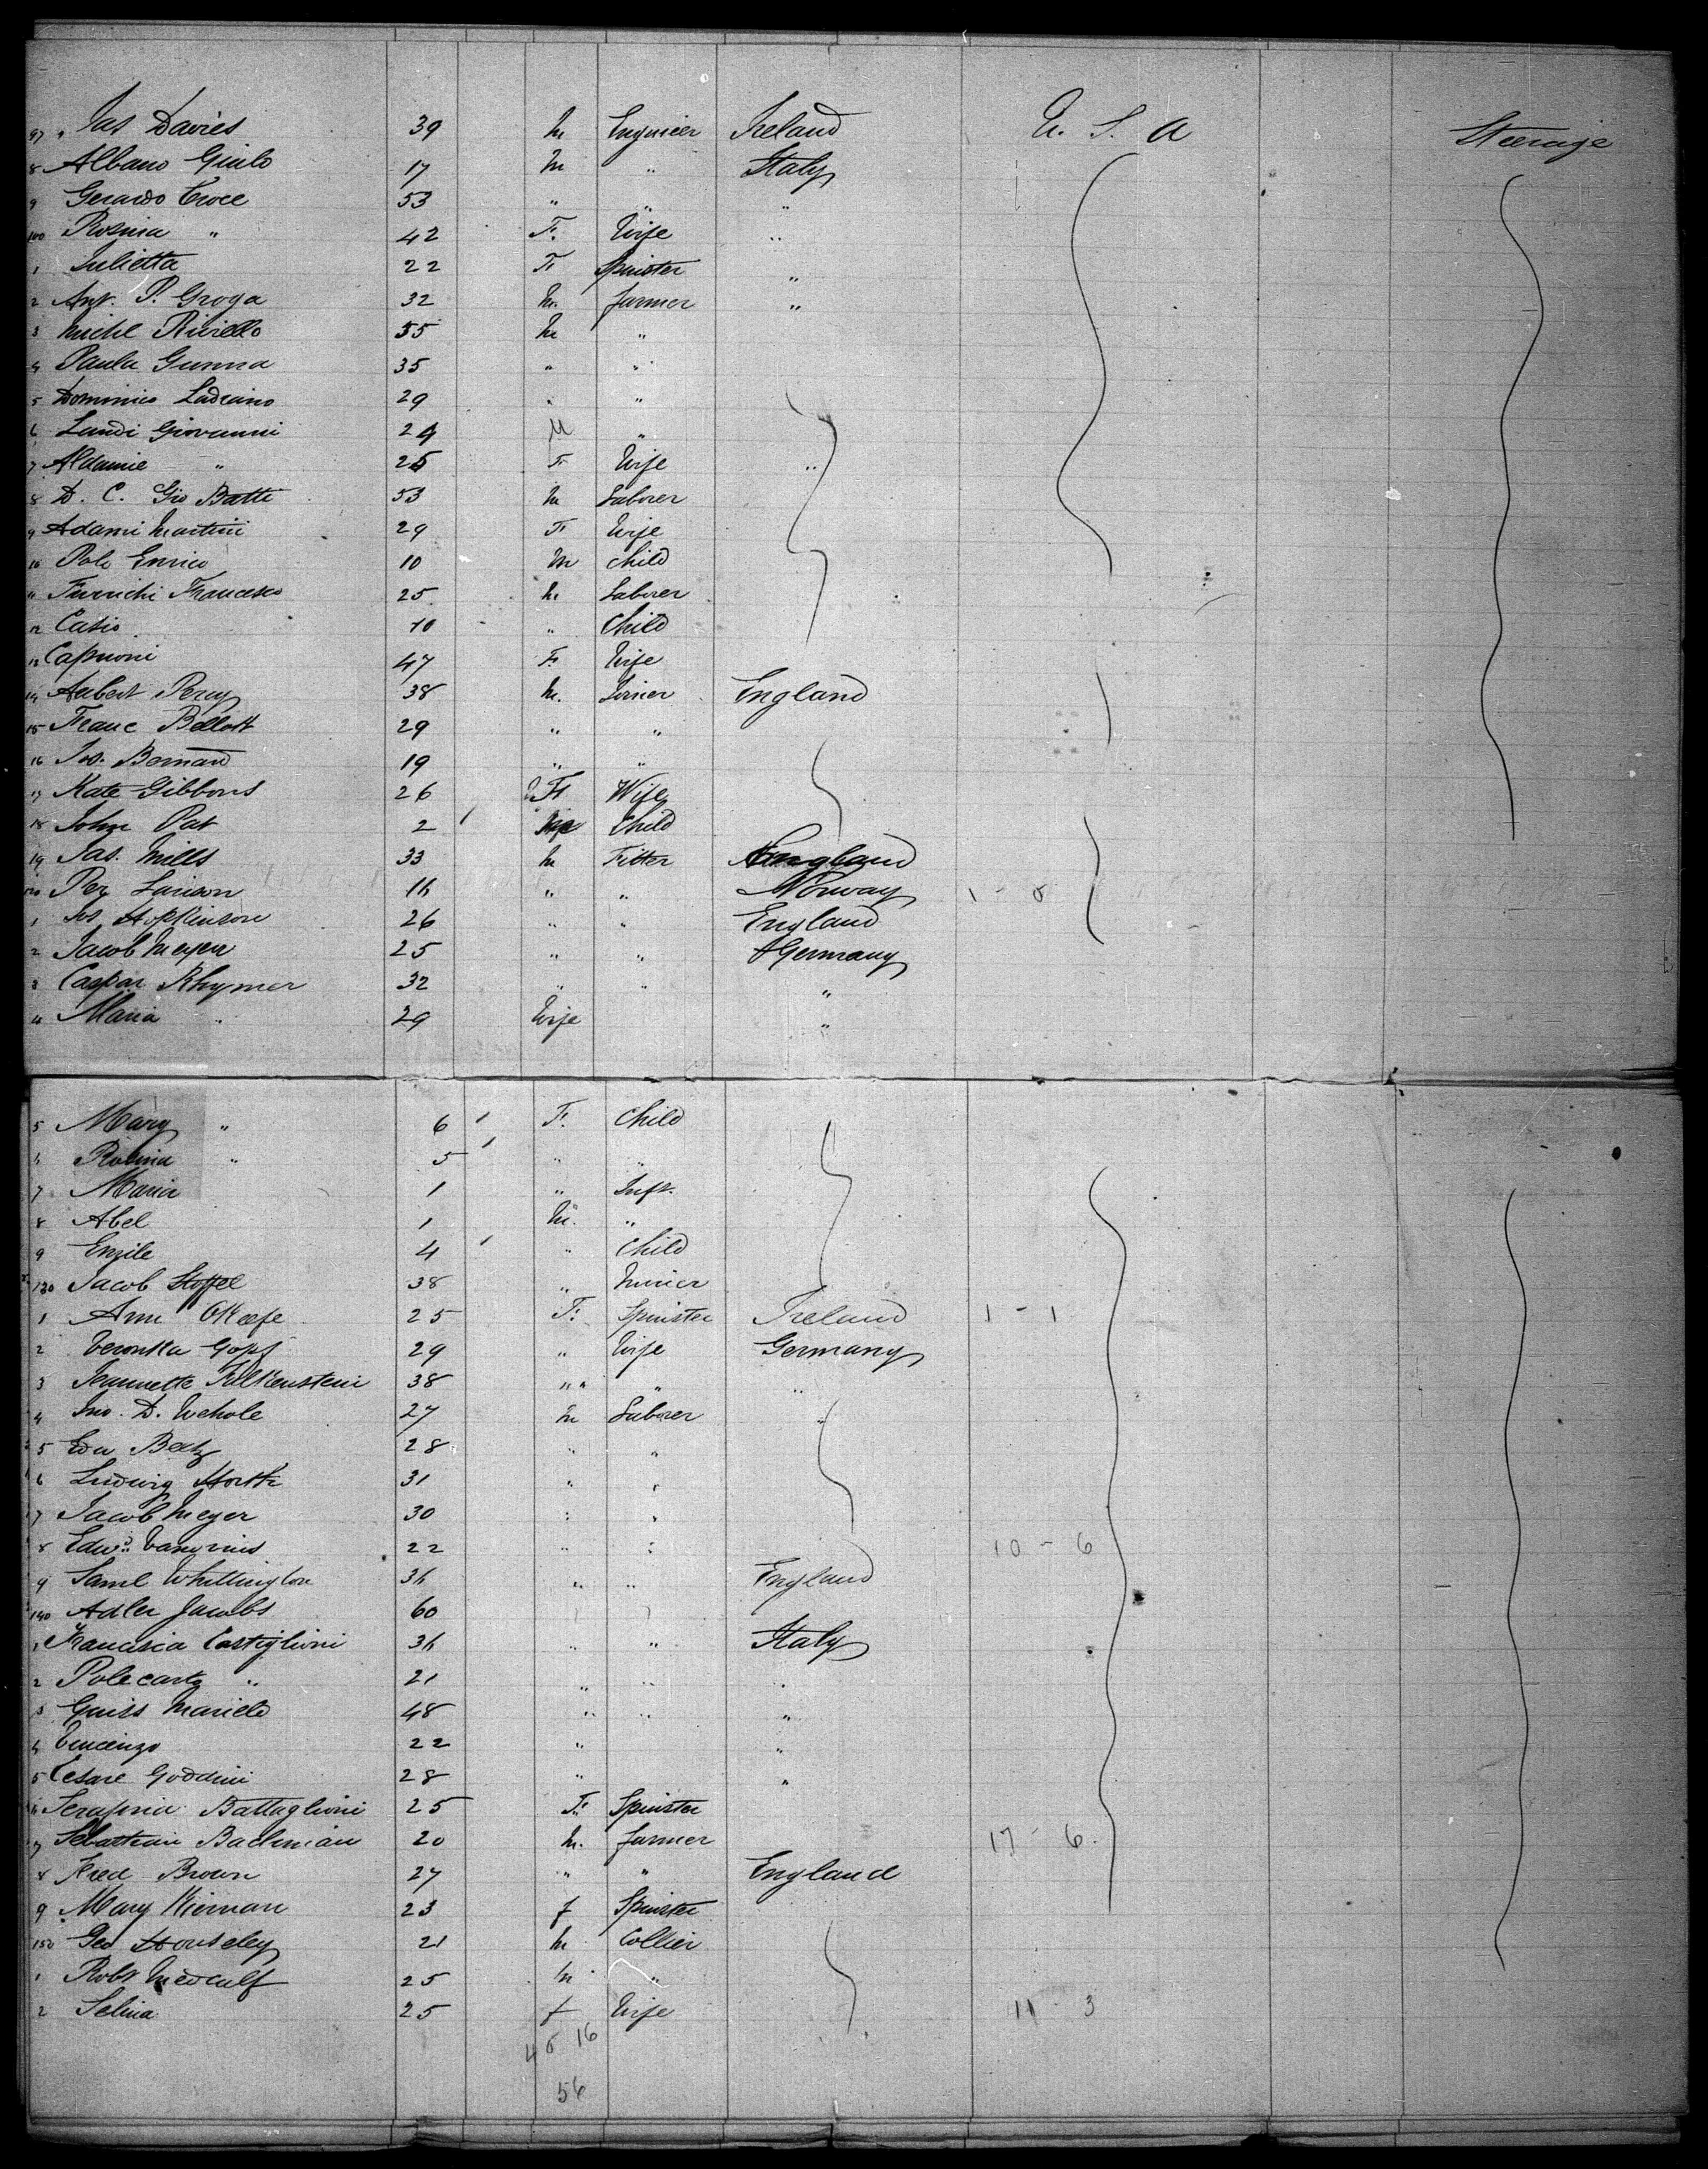 97 " Jas Davies 39 M Engineer Ireland U. S. A Steerage
8 Albano Giulo 17 M " Italy
9 Gerardo Croce 53 " " "
100 Rosina " 42 F. Wife "
1 Julietta 22 F Spinster "
2 Ant. P. Groga 32 M. farmer "
3 Michl Riviello 55 M "
4 Paula Gunna 35 " "
5 Dominico Ladziano 29 " "
6 Landi Giovanni 24 M "
7 Aldamie " 25 F Wife "
8 D. C. Gio Batti 53 M Laborer
9 Adami Martini 29 F Wife
10 Polo Enrico 10 M Child
11 Francesco 25 M Laborer
12 Casio 10 " Child
13 Capuoni 47 F. Wife
14 Aubert Percy 38 M. England
15 Franc Bellott 29 " "
16 Jos. Barnard 19 " "
17 Kate Gibbons 26 F Wife
18 John Pat 2 Child
19 Jas. Mills 33 M Fitter England
120 Per Larison 16 " " Norway 1 - 0
1 Jos Hopkinson 26 " " England
2 Jacob Meyer 25 " " Germany
3 Caspar Rhymer 32 " " "
4 Maria " 29 Wife "
5 Mary " 6 F. Child
6 Rosina " 5 " "
7 Maria 1 " Inft.
8 Abel 1 M. "
9 Emile 4 " Child
130 Jacob Stoffel 38 " Miner
1 Ann OKeefe 25 F. Spinster Ireland 1 - 1
2 Veronika Gopf 29 " Wife Germany
3 Jeannette Falkenstein 38 " " "
4 Jno. D. Wehole 27 M Laborer "
5 Edw Bertz 28 " "
6 Ludwig 31 " "
7 Jacob Meyer 30 " "
8 Edwd. 22 " " 10 - 6
9 Saml Whittington 36 " " England
140 Adler Jacobs 60 " "
1 Francisca Castiglioni 36 " " Italy
2 Polecarty " 21 " " "
3 Guiss Marieto 48 " " "
4 Vincenzo 22 " "
5 Cesare Goddini 28 " "
6 Serafina Battaglioni 25 F. Spinster
7 Sebastian Bachman 20 M. farmer 17 - 6.
8 Fred Brown 27 " " England
9 Mary Kiernan 23 f Spinster
150 Geo Houseley 21 M Collier
1 Robt Medcalf 25 M "
2 Selina 25 f Wife 11 - 3
40 16
56